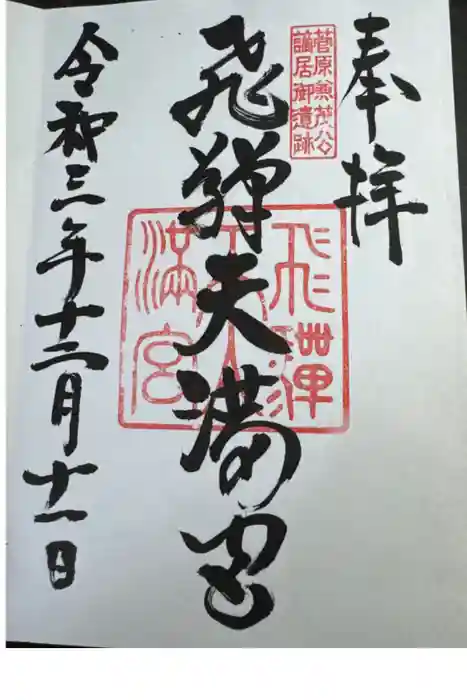 奉拝
菅原兼茂公
謫居御遺跡
飛騨天満宮
飛騨天満宮
令和三年十二月十一日